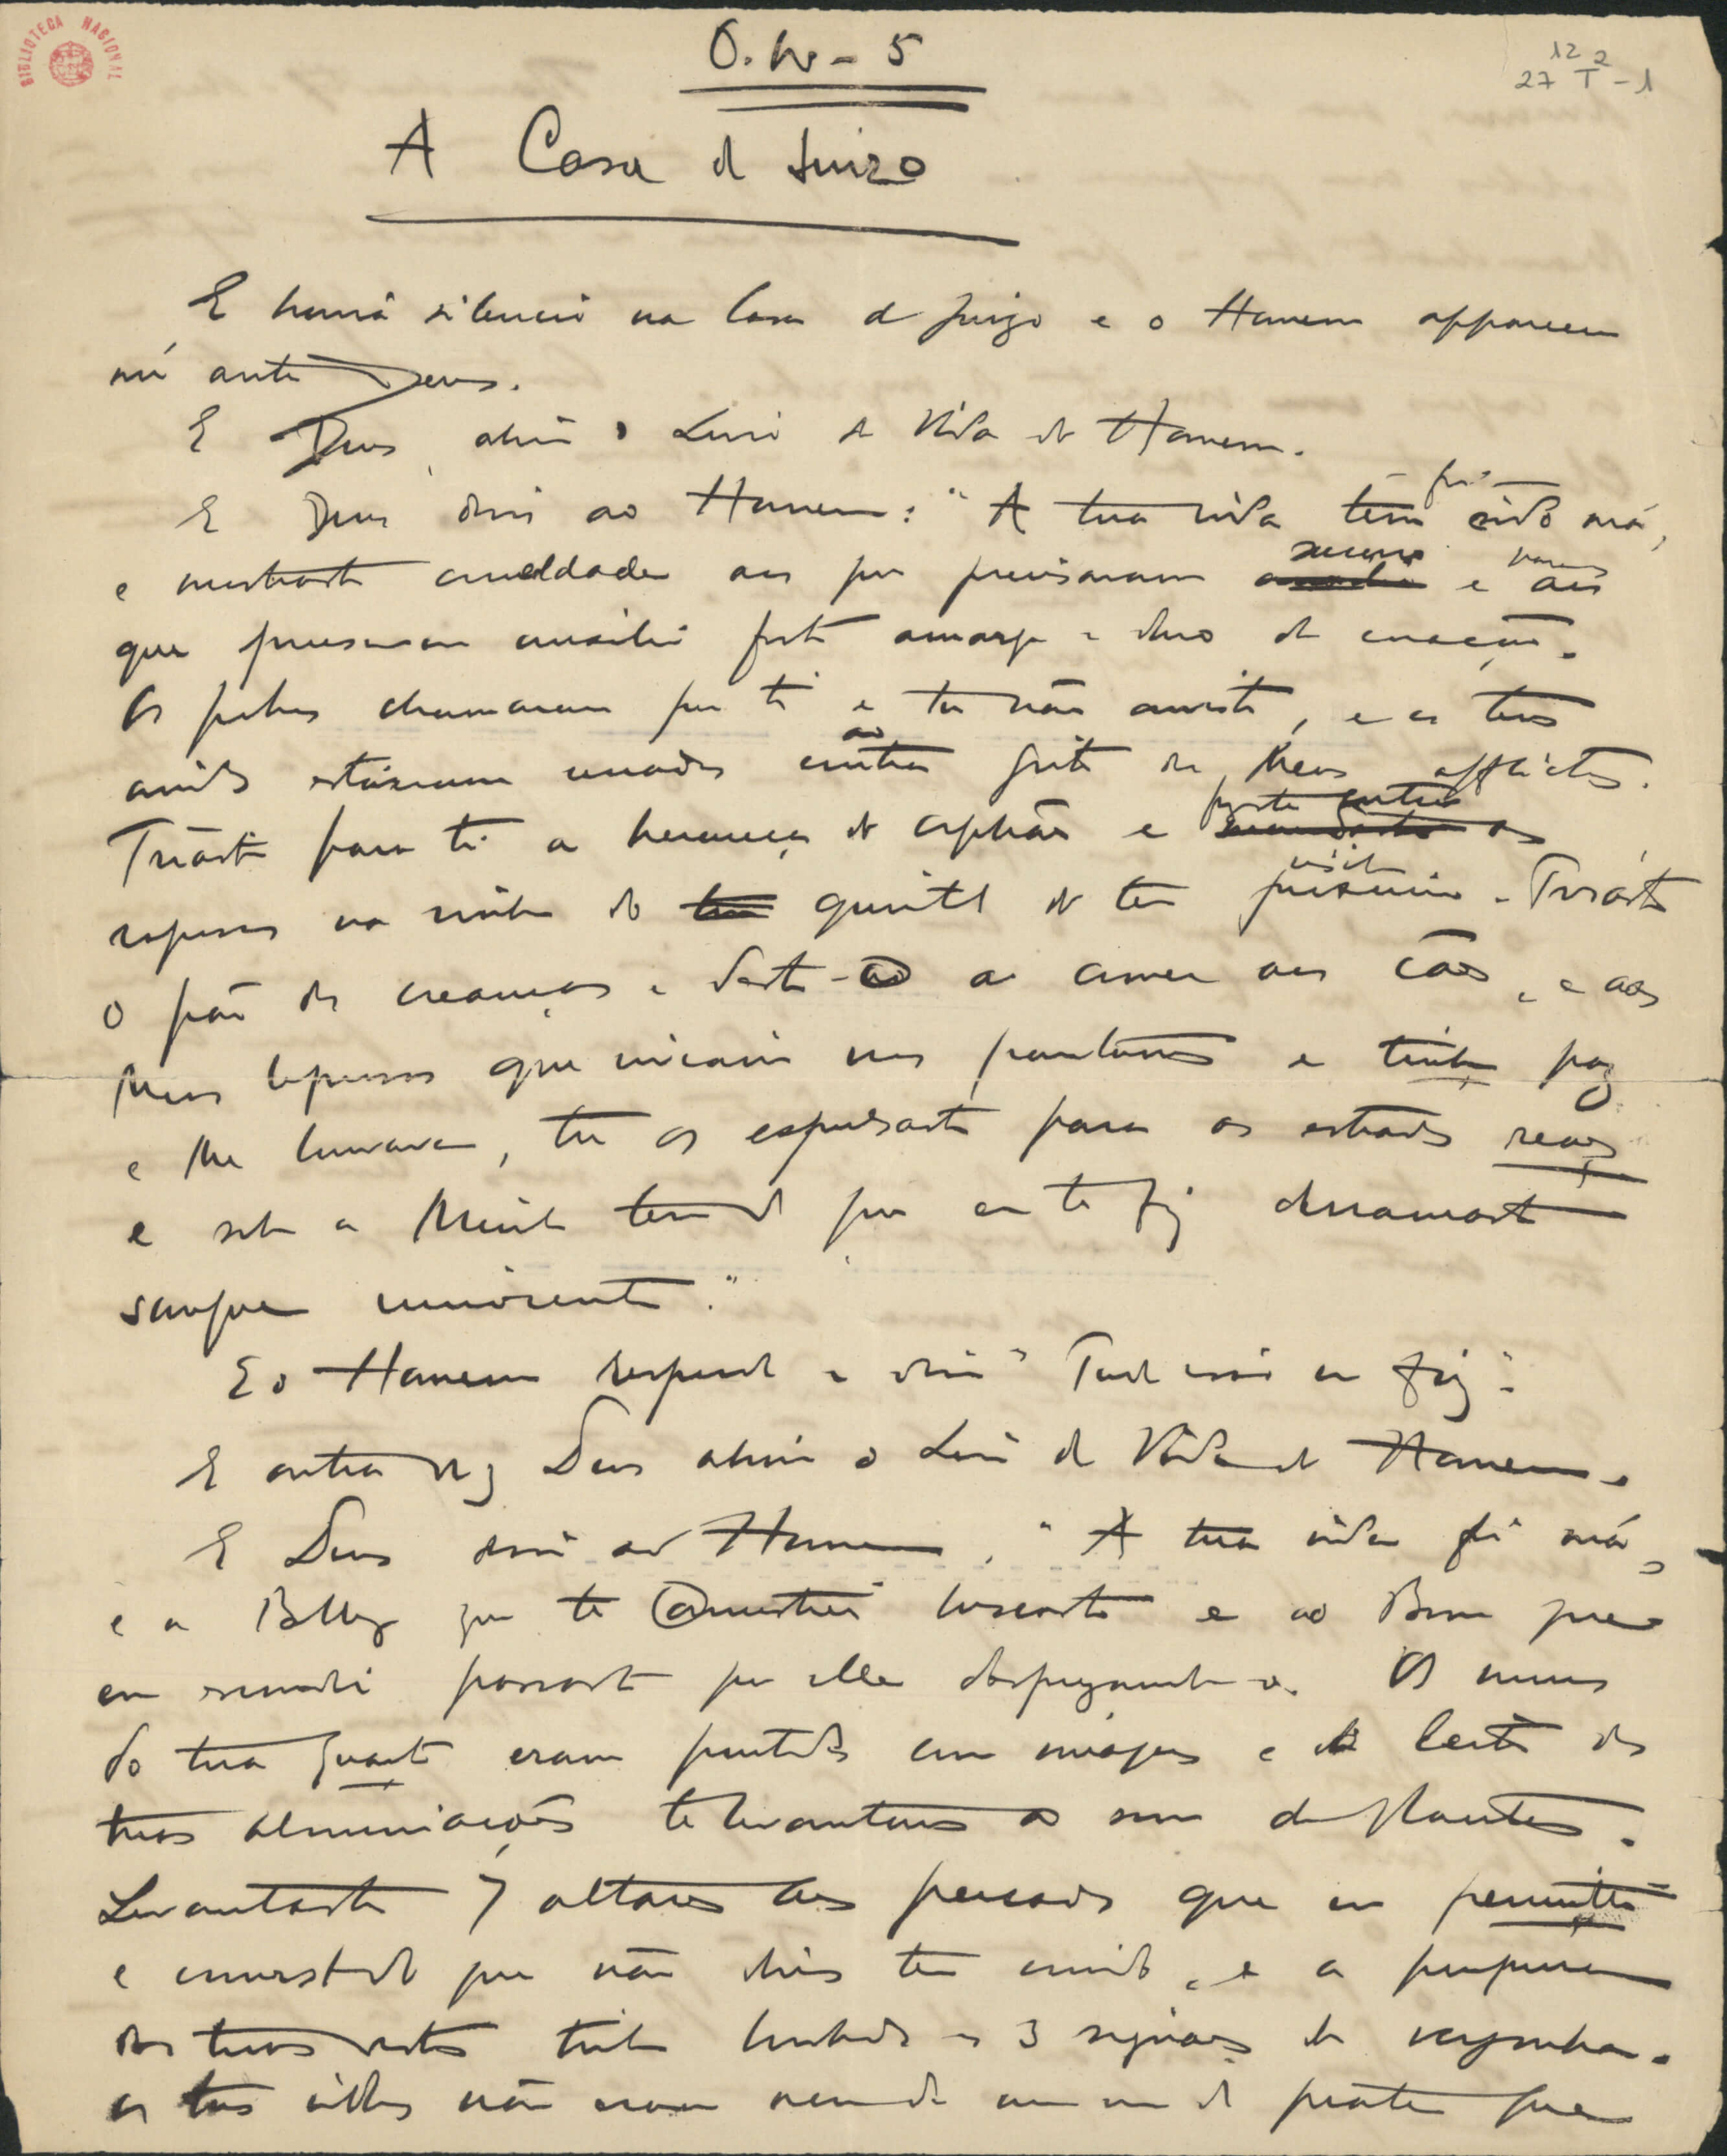 BIBLIOTECA NACIONAL
O.W. - 5
12 2
27 T - 1
A Casa de Juizo
E houve silencio na Casa de Juizo e o Homem appareceu
nú ante Deus.
E Deus abriu o Livro da Vida do Homem.
E Deus disse ao Homem: "A tua vida tem sido má,
foi
e mostraste crueldade aos que precisavam auxilio e aos
soccorro
que precisavam auxilio foste amargo e duro de coração.
Os pobres chamaram por ti e tu não ouviste, e os teus
ouvidos estiveram cerrados contra grito dos Meus afflictos.
ao
Tiraste para ti a herança do orphão e mandaste as
foste
raposas na vinha do teu quintal do teu
visinho. Tiraste
o pão das creanças e deste-o a comer aos cães, e aos
Meus leprosos que viviam nos pantanos e tinham paz
e Me louvavam, tu os expulsaste para as estradas
e sobre a Minha terra de que eu te fiz derramaste
sangue innocente."
E o Homem respondeu e disse "Tudo isso eu fiz".
E outra vez Deus abriu o Livro da Vida do Homem.
E Deus disse ao Homem, "A tua vida foi má,
e a Belleza que te mostrei buscaste e ao Bem que
eu escondi passaste por elle desprezando-o. Os muros
do teu quarto eram pintados com imagens e do leito das
tuas abominações te levantavas ao som de flautas.
Levantaste 7 altares aos peccados que eu
e comeste do que não devias ter comido, e a purpura
dos teus vestidos tinha bordados os 3 signaes da vergonha.
Os teus idolos não eram nem de ouro nem de prata que